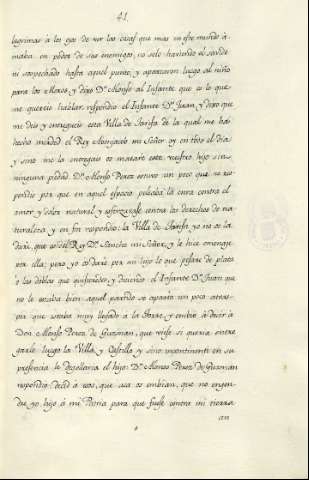 41.
lagrimas à los ojos de ver las cosas que mas en este mundo à-
maba en poder de sus enemigos, no selo haviendo el sabido
ni sospechado hasta aquel punto, y apartaron luego al niño
para los Moros, y dixo Dn. Alonso al Infante que es lo que
me quereis hablar. respondio el Infante Dn. Juan, y dixo que
me deis y entregueis esta Villa de Tarifa de la qual me hà
hecho merced el Rey Abenjacob mi Señor oy en todo el dia
y sino me la entregais os mataré este vuestro hijo sin
ninguna piedad. Dn. Alonso Perez estuvo un poco que no res-
pondio por que en aquel espacio peleaba la honra contra el
amor, y dolor natural y esforzavase contra los derechos de na-
turaleza, y en fin respondio: la Villa de Tarifa yo no os la
daré, que es del Rey Dn. Sancho mi Señor, y le hice omenage
por ella; pero yo os daré por mi hijo lo que pesare de plata
ò las doblas que quisieredes, y diciendo el Infante Dn. Juan que
no le estaba bien aquel partido se aparto un poco atras
por que estaba muy llegado a la Torre, y embió à decir à
Don Alonso Perez de Guzman, que viese si queria entre-
garle luego la Villa, y Castillo, y sino incontinenti en su
presencia le degollaria el hijo: Dn. Alonso Perez de Guzman
respondio: decid à vos, que acà os embian, que no engen-
dre yo hijo à mi Patria para que fuese contra mi tierra
an